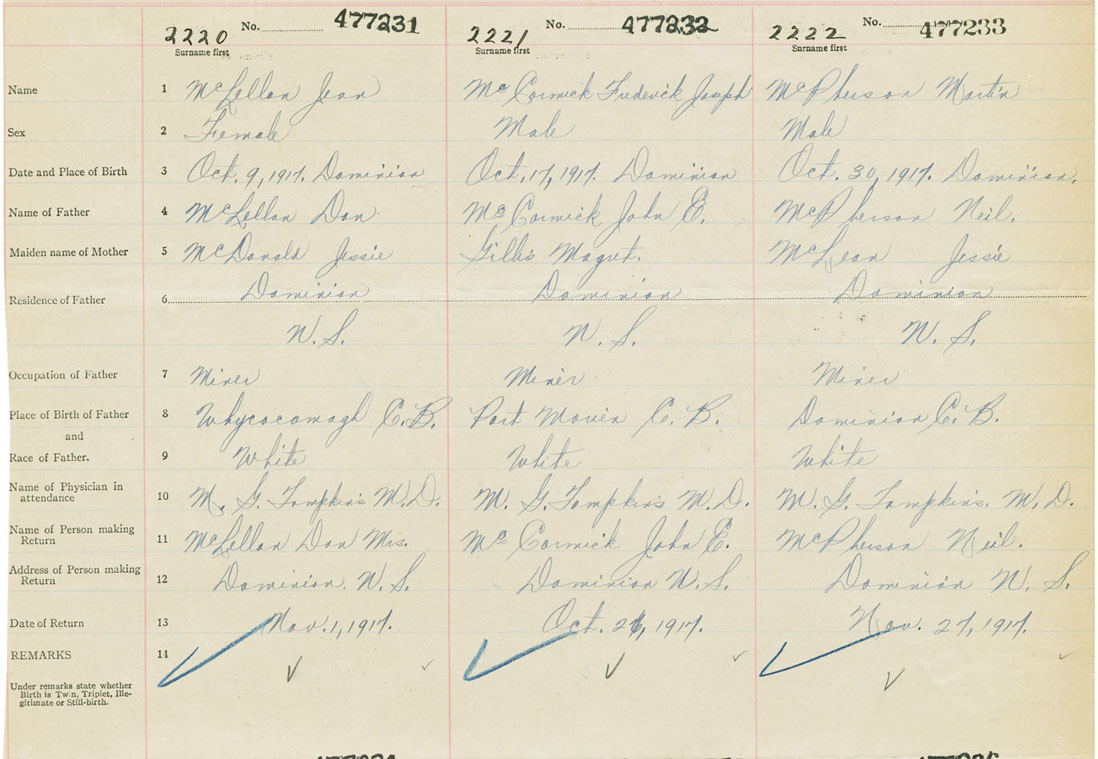 No. 477231 No. 477232 No. 477233
2220 2221 2222
Surname first Surname first Surname first
Name 1 McLellan Jean McCormick Frederick Joseph McPherson Martin
Sex 2 Female Male Male
Date and Place of Birth 3 Oct. 9, 1917. Dominion Oct. 17, 1917. Dominion Oct. 30, 1917. Dominion.
Name of Father 4 McLellan Dan. McCormick John E. McPherson Neil.
Maiden name of Mother 5 McDonald Jessie Gillis Magret. McLean Jessie
Residence of Father 6 Dominion Dominion Dominion
N. S. N. S. N. S.
Occupation of Father 7 Miner Miner Miner
Place of Birth of Father 8 Whycocomagh C.B. Port Morien C. B. Dominion C. B.
and
Race of Father. 9 White White White
Name of Physician in
attendance 10 M. G. Tompkins M.D. M. G. Tompkins M.D. M. G. Tompkins. M.D.
Name of Person making
Return 11 McLellan Dan Mrs. McCormick John E. McPherson Neil.
Address of Person making
Return 12 Dominion. N. S. Dominion N. S. Dominion N. S.
Date of Return 13 Nov. 1, 1917. Oct. 26, 1917. Nov. 27, 1917.
REMARKS 14
Under remarks state whether
Birth is Twin, Triplet, Ille-
gitimate or Still-birth.